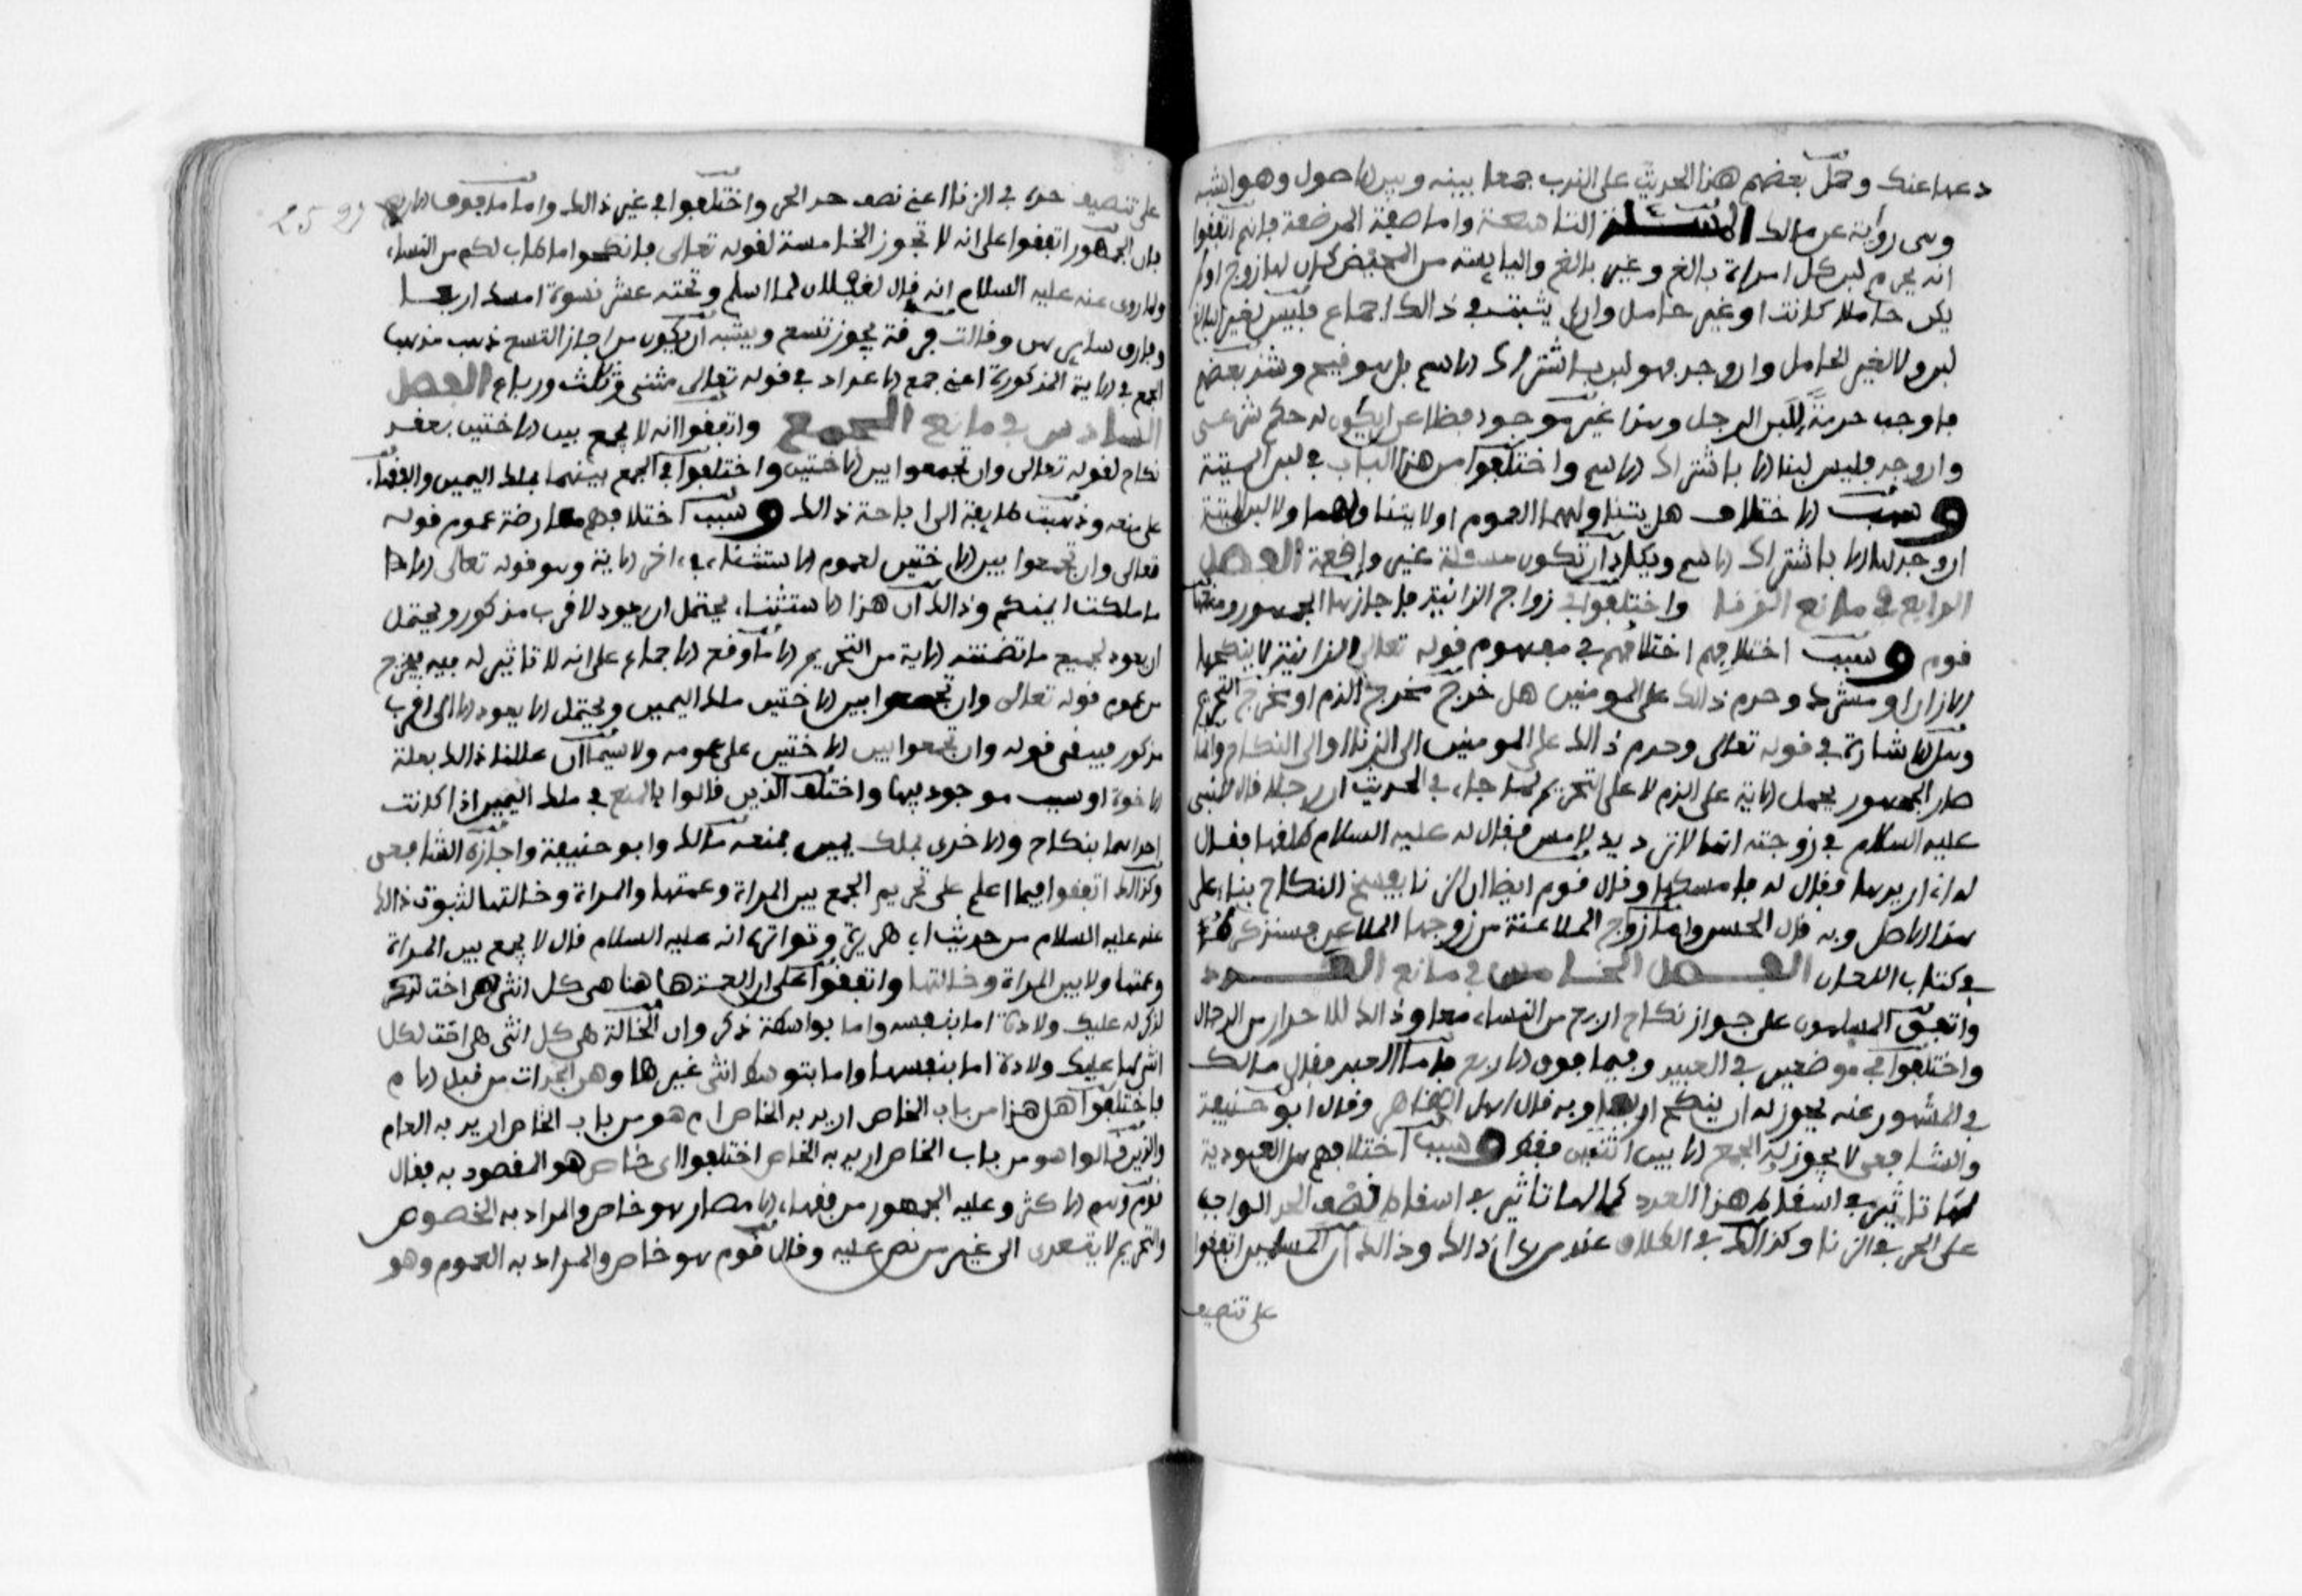 دعها عنك وحمل بعضهم هذا الحديث على الندب جمعا بينه وبين الاصول وهو اشبه
وهى رواية عن مالك المسئلة التاسعة واما صفة المرضعة فانهم اتفقوا
انه يحرم لبن كل امراة بالغ وغير بالغ واليايسة من المحيض كان لها زوج او لم
يكن حاملا كانت او غير حامل وان لم يثبت في ذالك اجماع فليس لغير البالغ
لبن ولا لغير الحامل وان وجد فهو لبن باشتراك الاسم بل هو قيح وشذ بعضهم
فاوجب حرمة للبن الرجل وهذا غير موجود فضلا عن ان يكون له حكم شرعى
وان وجد فليس لبنا الا باشتراك الاسم واختلفوا من هذا الباب في لبن الميتة
وسبب الاختلاف هل يتناولهما العموم او لا يتناولهما ولا لبن للميتة
ان وجد لها الا باشتراك الاسم ويكاد ان تكون مسئلة غير واقعة الفصل
الرابع في مانع الزنا واختلفوا في زواج الزانية فاجازها الجمهور ومنعها
قوم وسبب اختلافهم اختلافهم في مفهوم قوله تعالى والزانية لا ينكحها
الا زان او مشرك وحرم ذالك على المومنين هل خرج مخرج الذم او مخرج التحريم
وهل الاشارة في قوله تعالى وحرم ذالك على المومنين الى الزنا او الى النكاح وانما
صار الجمهور يحمل الاية على الذم لا على التحريم لما جاء في الحديث ان رجلا قال للنبى
عليه السلام في زوجته انها لا ترد يد لامس فقال له عليه السلام طلقها فقال
له انى اريدها فقال له فامسكها وقال قوم ايضا ان الزنا يفسخ النكاح بناء على
هذا الاصل وبه قال الحسن واما زواج الملاعنة من زوجها الملاعن فسنذكرها
في كتاب اللعان الفصل الخامس في مانع العدد
واتفق المسلمون على جواز نكاح اربع من النساء معا وذالك للاحرار من الرجال
واختلفوا في موضعين في العبيد وفيما فوق الاربع فاما العبد فقال مالك
في المشهور عنه يجوز له ان ينكح اربعا وبه قال اهل الظاهر وقال ابو حنيفة
والشافعى لا يجوز له الجمع الا بين اثنتين فقط وسبب اختلافهم هل العبودية
لها تاثير في اسقاط هذا العدد كما لها تاثير في اسقاط نصف الحد الواجب
على الحر في الزنا وكذالك في الطلاق عند من راى ذالك وذالك ان المسلمين اتفقوا
على تنصيف
على تنصيف حده في الزنا اعنى نصف حد الحر واختلفوا في غير ذالك واما ما فوق الاربع
فان الجمهور اتفقوا على انه لا تجوز الخامسة لقوله تعالى فانكحوا ما طاب لكم من النساء
ولما روى عنه عليه السلام انه قال لغيلان لما اسلم وتحته عشر نسوة امسك اربعا
وفارق سايرهن وقالت فرقة يجوز تسع ويشبه ان يكون من اجاز التسع ذهب مذهب
الجمع في الاية المذكورة اعنى جمع الاعداد في قوله تعالى مثنى وثلث ورباع الفصل
السادس في مانع الجمع واتفقوا انه لا يجمع بين الاختين بعقد
نكاح لقوله تعالى وان تجمعوا بين الاختين واختلفوا في الجمع بينهما بملك اليمين والفقهاء
على منعه وذهبت طايفة الى اباحة ذالك وسبب اختلافهم معارضة عموم قوله
تعالى وان تجمعوا بين الاختين لعموم الاستثناء في اخر الاية وهو قوله تعالى الا ما
ما ملكت ايمنكم وذالك ان هذا الاستثناء يحتمل ان يعود لاقرب مذكور ويحتمل
ان يعود لجميع ما تضمنته الاية من التحريم الا ما وقع الاجماع على انه لا تاثير له فيه فيخرج
من عموم قوله تعالى وان تجمعوا بين الاختين ملك اليمين ويحتمل الا يعود الا الى اقرب
مذكور فيبقى قوله وان تجمعوا بين الاختين على عمومه ولا سيما ان عللنا ذالك بعلة
الاخوة او سبب موجود فيهما واختلف الذين قالوا بالمنع في ملك اليمين اذا كانت
احداهما بنكاح والاخرى بملك يمين فمنعه مالك وابو حنيفة واجازه الشافعى
وكذالك اتفقوا فيما اعلم على تحريم الجمع بين المراة وعمتها والمراة وخالتها لثبوت ذالك
عنه عليه السلام من حديث ابى هريرة وتواتره انه عليه السلام قال لا يجمع بين المراة
وعمتها ولا بين المراة وخالتها واتفقوا على ان العمة هاهنا هى كل انثى هى اخت لذكر
لذكر له عليك ولادة اما بنفسه واما بواسطة ذكر وان الخالة هى كل انثى هى اخت لكل
انثى لها عليك ولادة اما بنفسها واما بتوسط انثى غيرها وهن الجدات من قبل الام
فاختلفوا هل هذا من باب الخاص اريد به الخاص ام هو من باب الخاص اريد به العام
والذين قالوا هو من باب الخاص اريد به الخاص اختلفوا اى خاص هو المقصود به فقال
قوم وهم الاكثر وعليه الجمهور من فقهاء الامصار هو خاص والمراد به الخصوص
والتحريم لا يتعدى الى غير من نص عليه وقال قوم هو خاص والمراد به العموم وهو